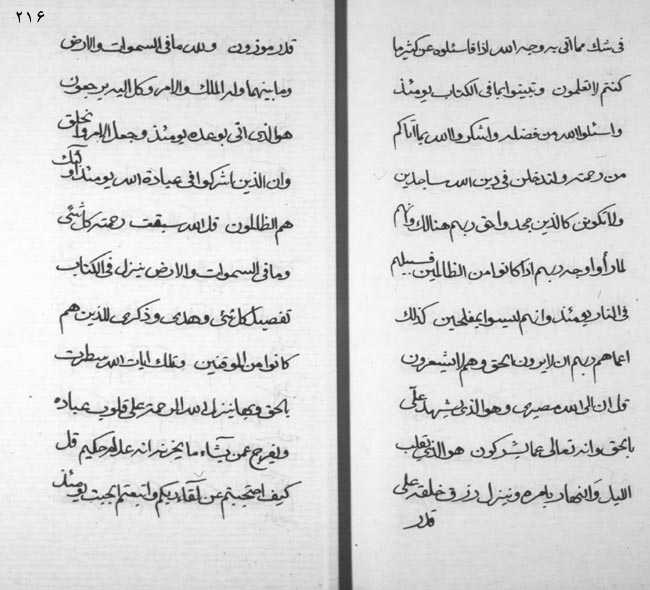 ٢١۶
فی شك مما اتی به وجه الله اذا فاسئلوه عن كثیر ما
كنتم لا تعلمون وتبینوا بما فی الكتاب یومئذ
واسئلوا الله من فضله واشكروا الله بما اتاكم
من رحمته ولتدخلن فی دین الله ساجدین
ولا تكونن كالذین جحدوا بحق ربهم هنالك
لما رأوا وجه ربهم اذا كانوا من الظالمین
فی النار یومئذ وانهم لیسوا بمفلحین كذلك
اعماهم ربهم ان لا یرون الحق وهم لا یشعرون
قل ان الی الله مصیری وهو الذی یشهد علی
بالحق وانه تعالی عما یشركون هو الذی یقلب
اللیل والنهار بامره وینزل رزق خلقه علی
قدر
قدر موزون ولله ما فی السموات والارض
وما بینهما وله الملك والامر وكل الیه یرجعون
هو الذی اتی بوعده یومئذ وجعل الامر
وان الذین اشركوا فی عبادة الله یومئذ اولئك
هم الظالمون قل الله سبقت رحمته كل شئ
وما فی السموات والارض ینزل فی الكتاب
تفصیل كل شئ وهدی وذكری للذین هم
كانوا من الموقنین وتلك ایات الله سطرت
بالحق وبها ینزل الله الرحمة علی قلوب عباده
ویفرج عمن یشاء ما یحزنه انه علیم حكیم قل
كیف احتجبتم عن لقاء ربكم واتبعتم الجبت یومئذ